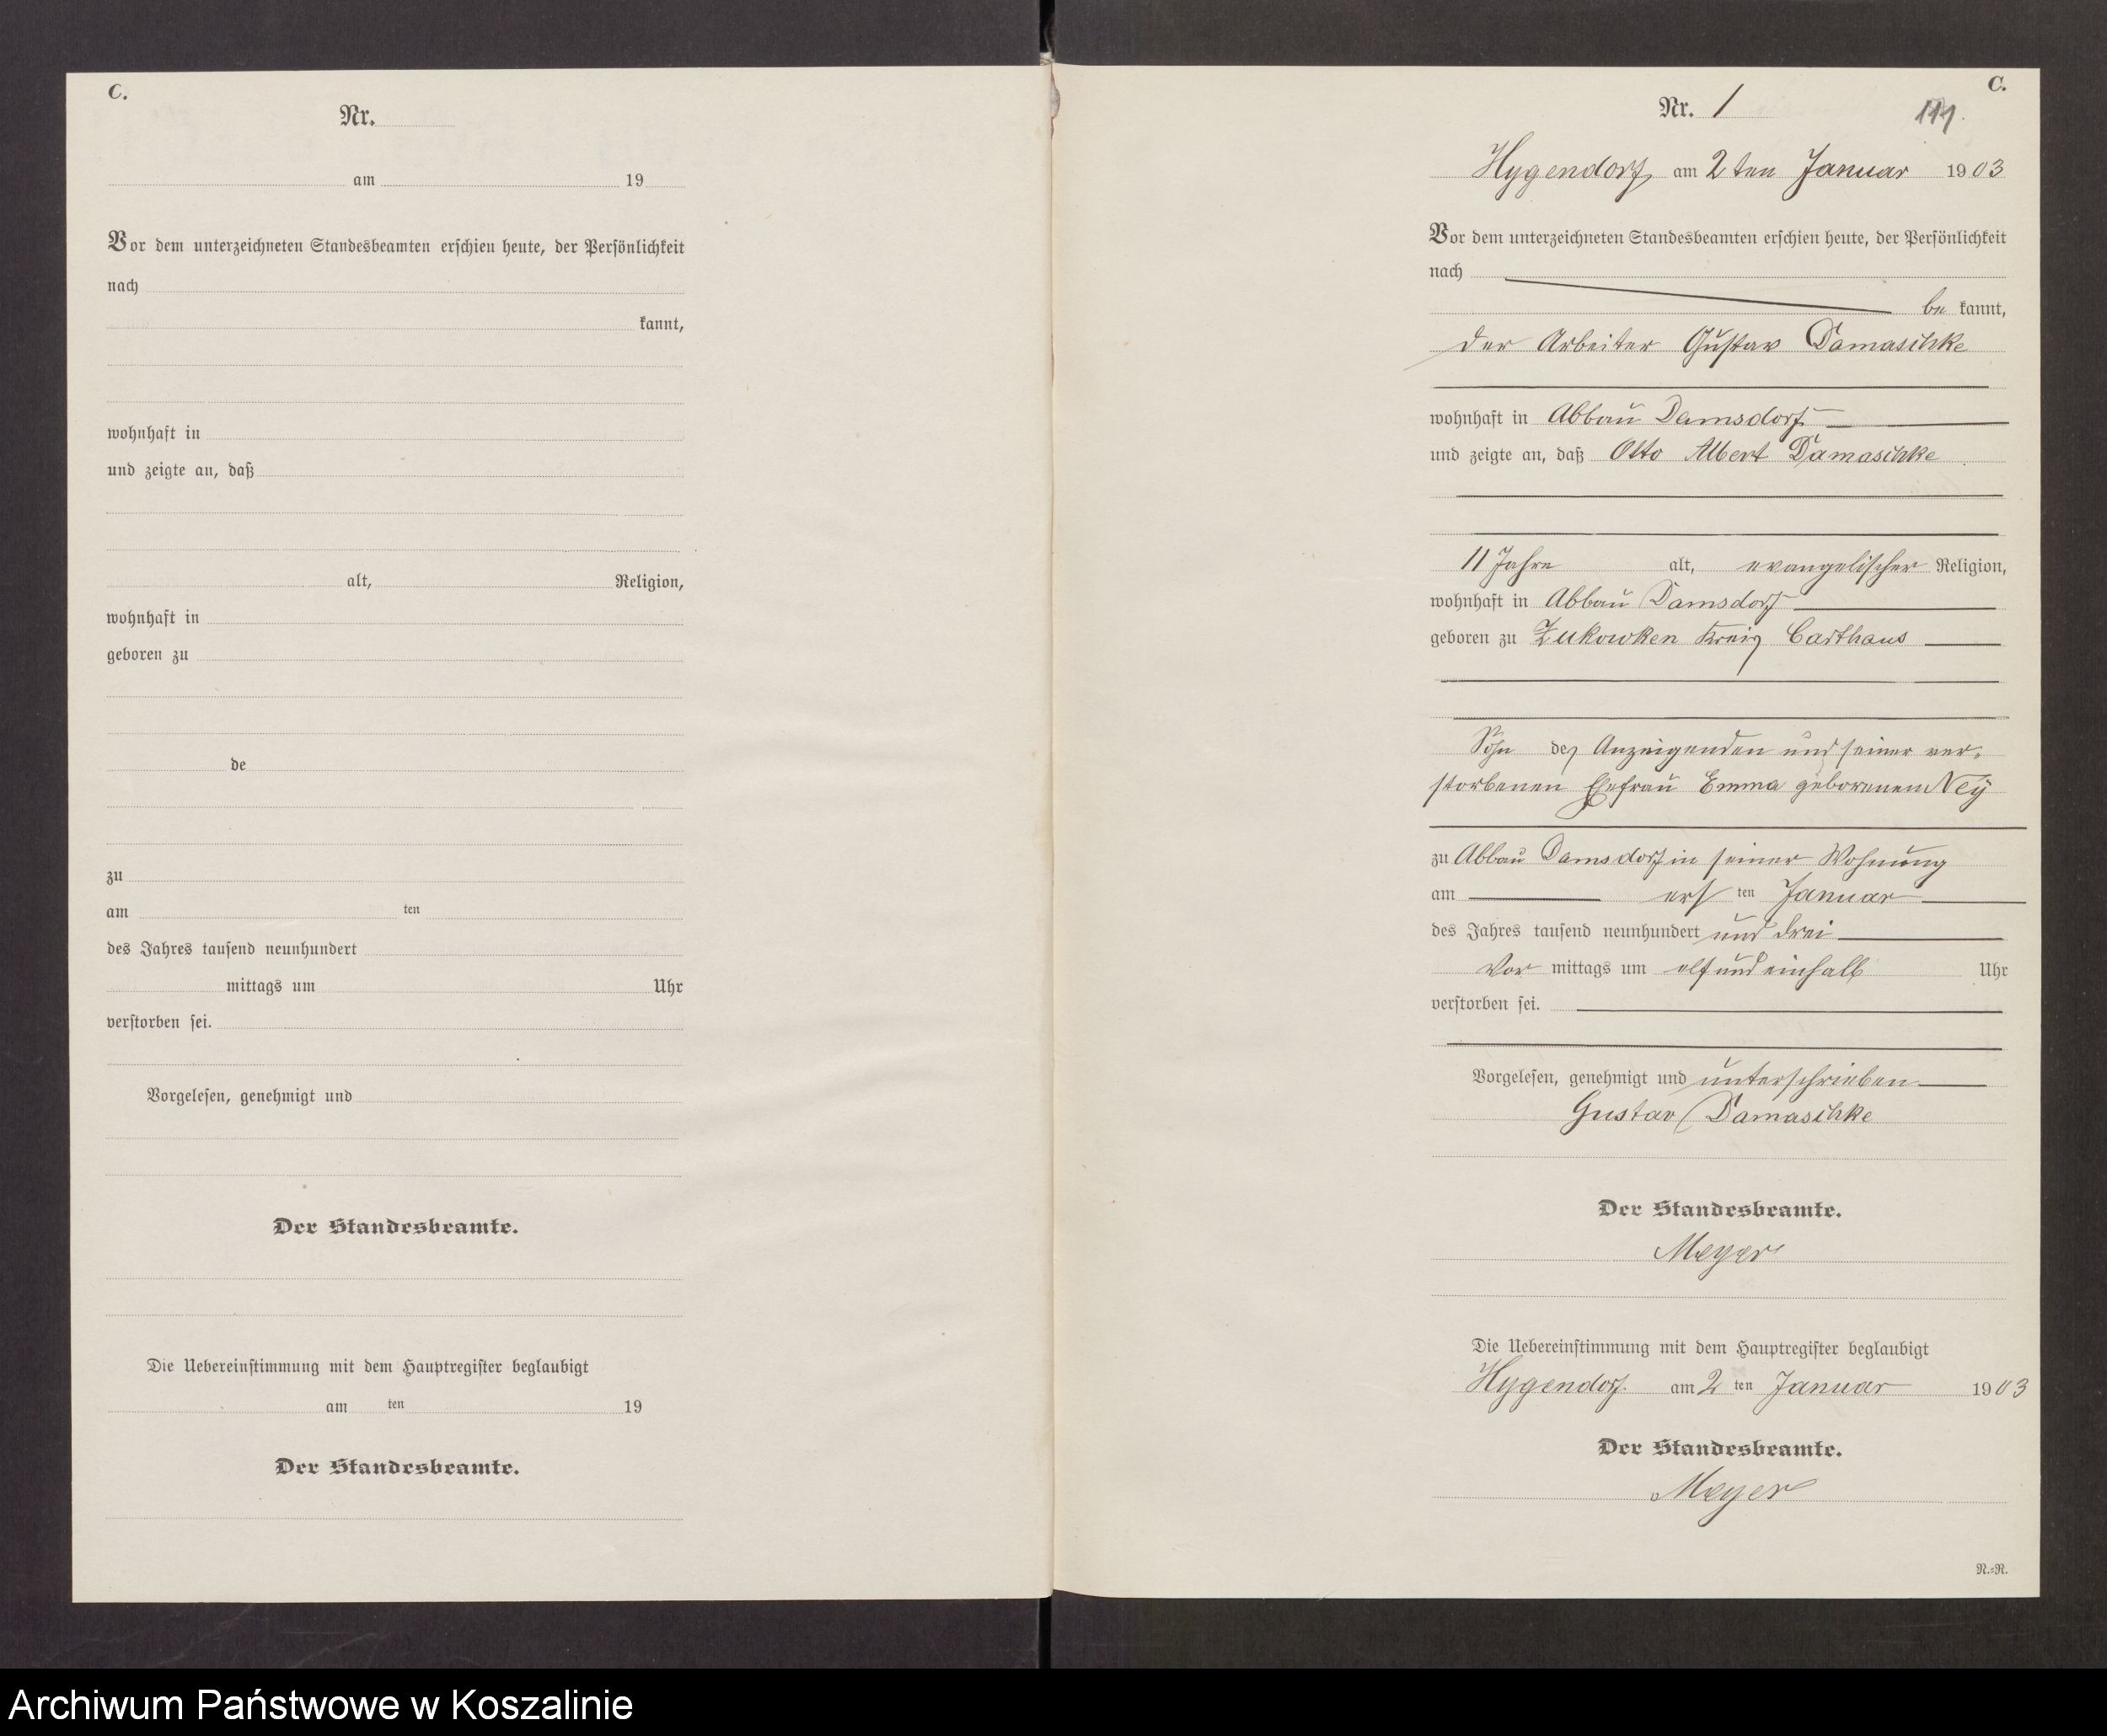 C.
Nr.
am 19
Vor dem unterzeichneten Standesbeamten erschien heute, der Persönlichkeit
nach
kannt,
wohnhaft in
und zeigte an, daß
alt, Religion,
wohnhaft in
geboren zu
de
zu
am ten
des Jahres tausend neunhundert
mittags um Uhr
verstorben sei.
Vorgelesen, genehmigt und
Der Standesbeamte.
Die Uebereinstimmung mit dem Hauptregister beglaubigt
am ten 19
Der Standesbeamte.
C.
Nr. 1
Hygendorf am 2ten Januar 1903
Vor dem unterzeichneten Standesbeamten erschien heute, der Persönlichkeit
nach
be kannt,
der Arbeiter Gustav Damaschke
wohnhaft in Abbau Damsdorf
und zeigte an, daß Otto Albert Damaschke
11 Jahre alt, evangelischer Religion,
wohnhaft in Abbau Damsdorf
geboren zu Zukowken Kreis Carthaus
Sohn des Anzeigenden und seiner ver-
storbenen Ehefrau Emma geborenen Ney
zu Abbau Damsdorf in seiner Wohnung
am ersten Januar
des Jahres tausend neunhundert und drei
Vor mittags um elf und einhalb Uhr
verstorben sei.
Vorgelesen, genehmigt und unterschrieben
Gustav Damaschke
Der Standesbeamte.
Meyer
Die Uebereinstimmung mit dem Hauptregister beglaubigt
Hygendorf am 2 ten Januar 1903
Der Standesbeamte.
Meyer
N.=N.
Archiwum Państwowe w Koszalinie